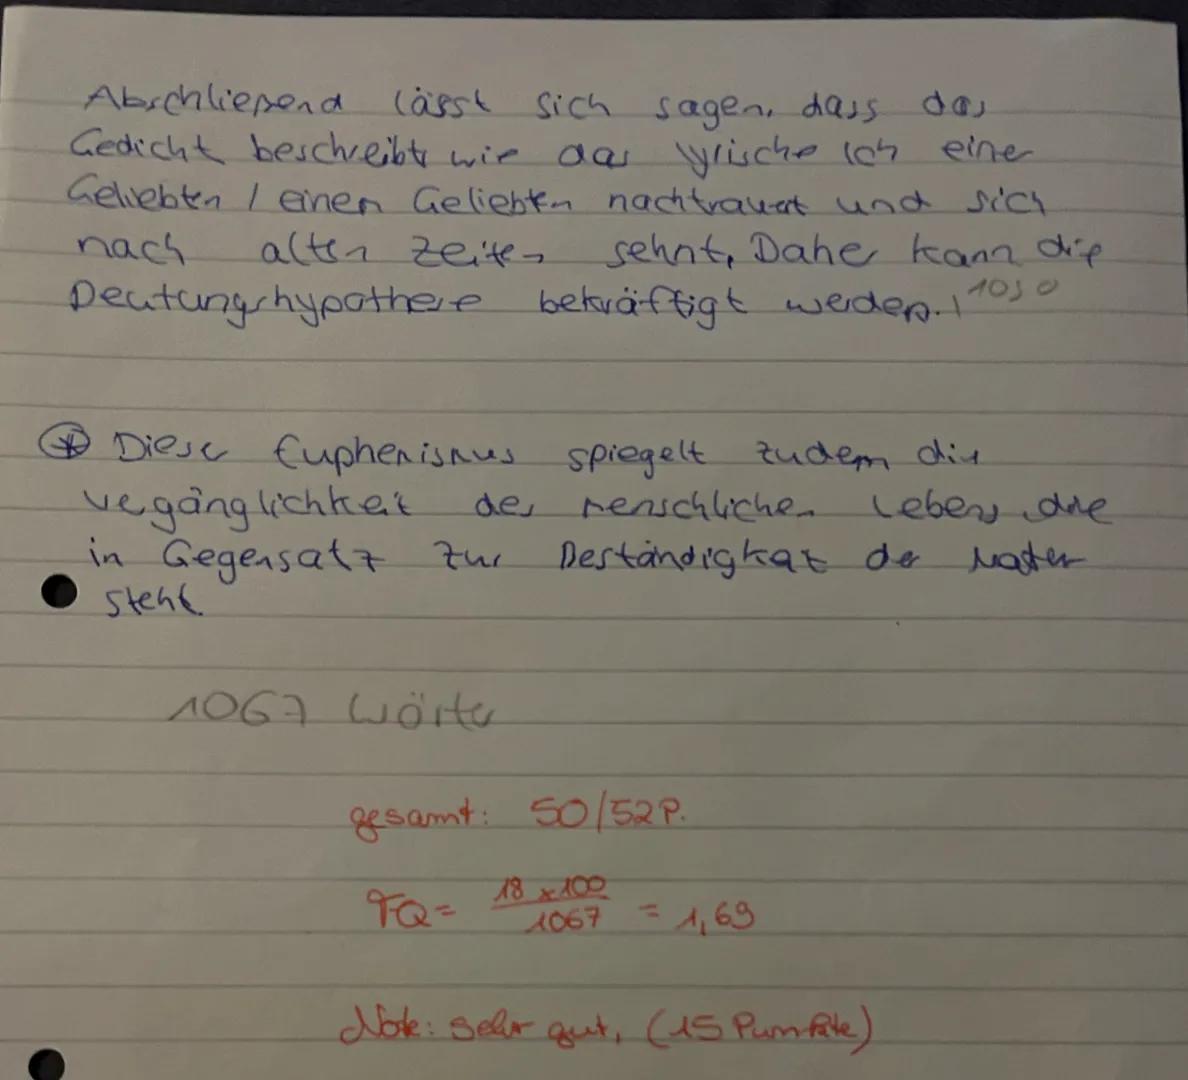 Abschließend lässt sich sagen, dass das
Gedicht beschreibt, wie das lyrische Ich eine
Geliebten / einen Geliebten nachtrauert und sich
nach alten Zeiten sehnt. Daher kann die
Deutungshypothese bekräftigt werden. | 1030
* Dieser Euphemismus spiegelt zudem die
Vergänglichkeit des menschlichen Lebens, die
in Gegensatz zur Beständigkeit der Natur
steht.
1067 Wörter
gesamt: 50/52P.
FQ = 18 x 100 / 1067 = 1,69
Note: sehr gut, (15 Punkte)